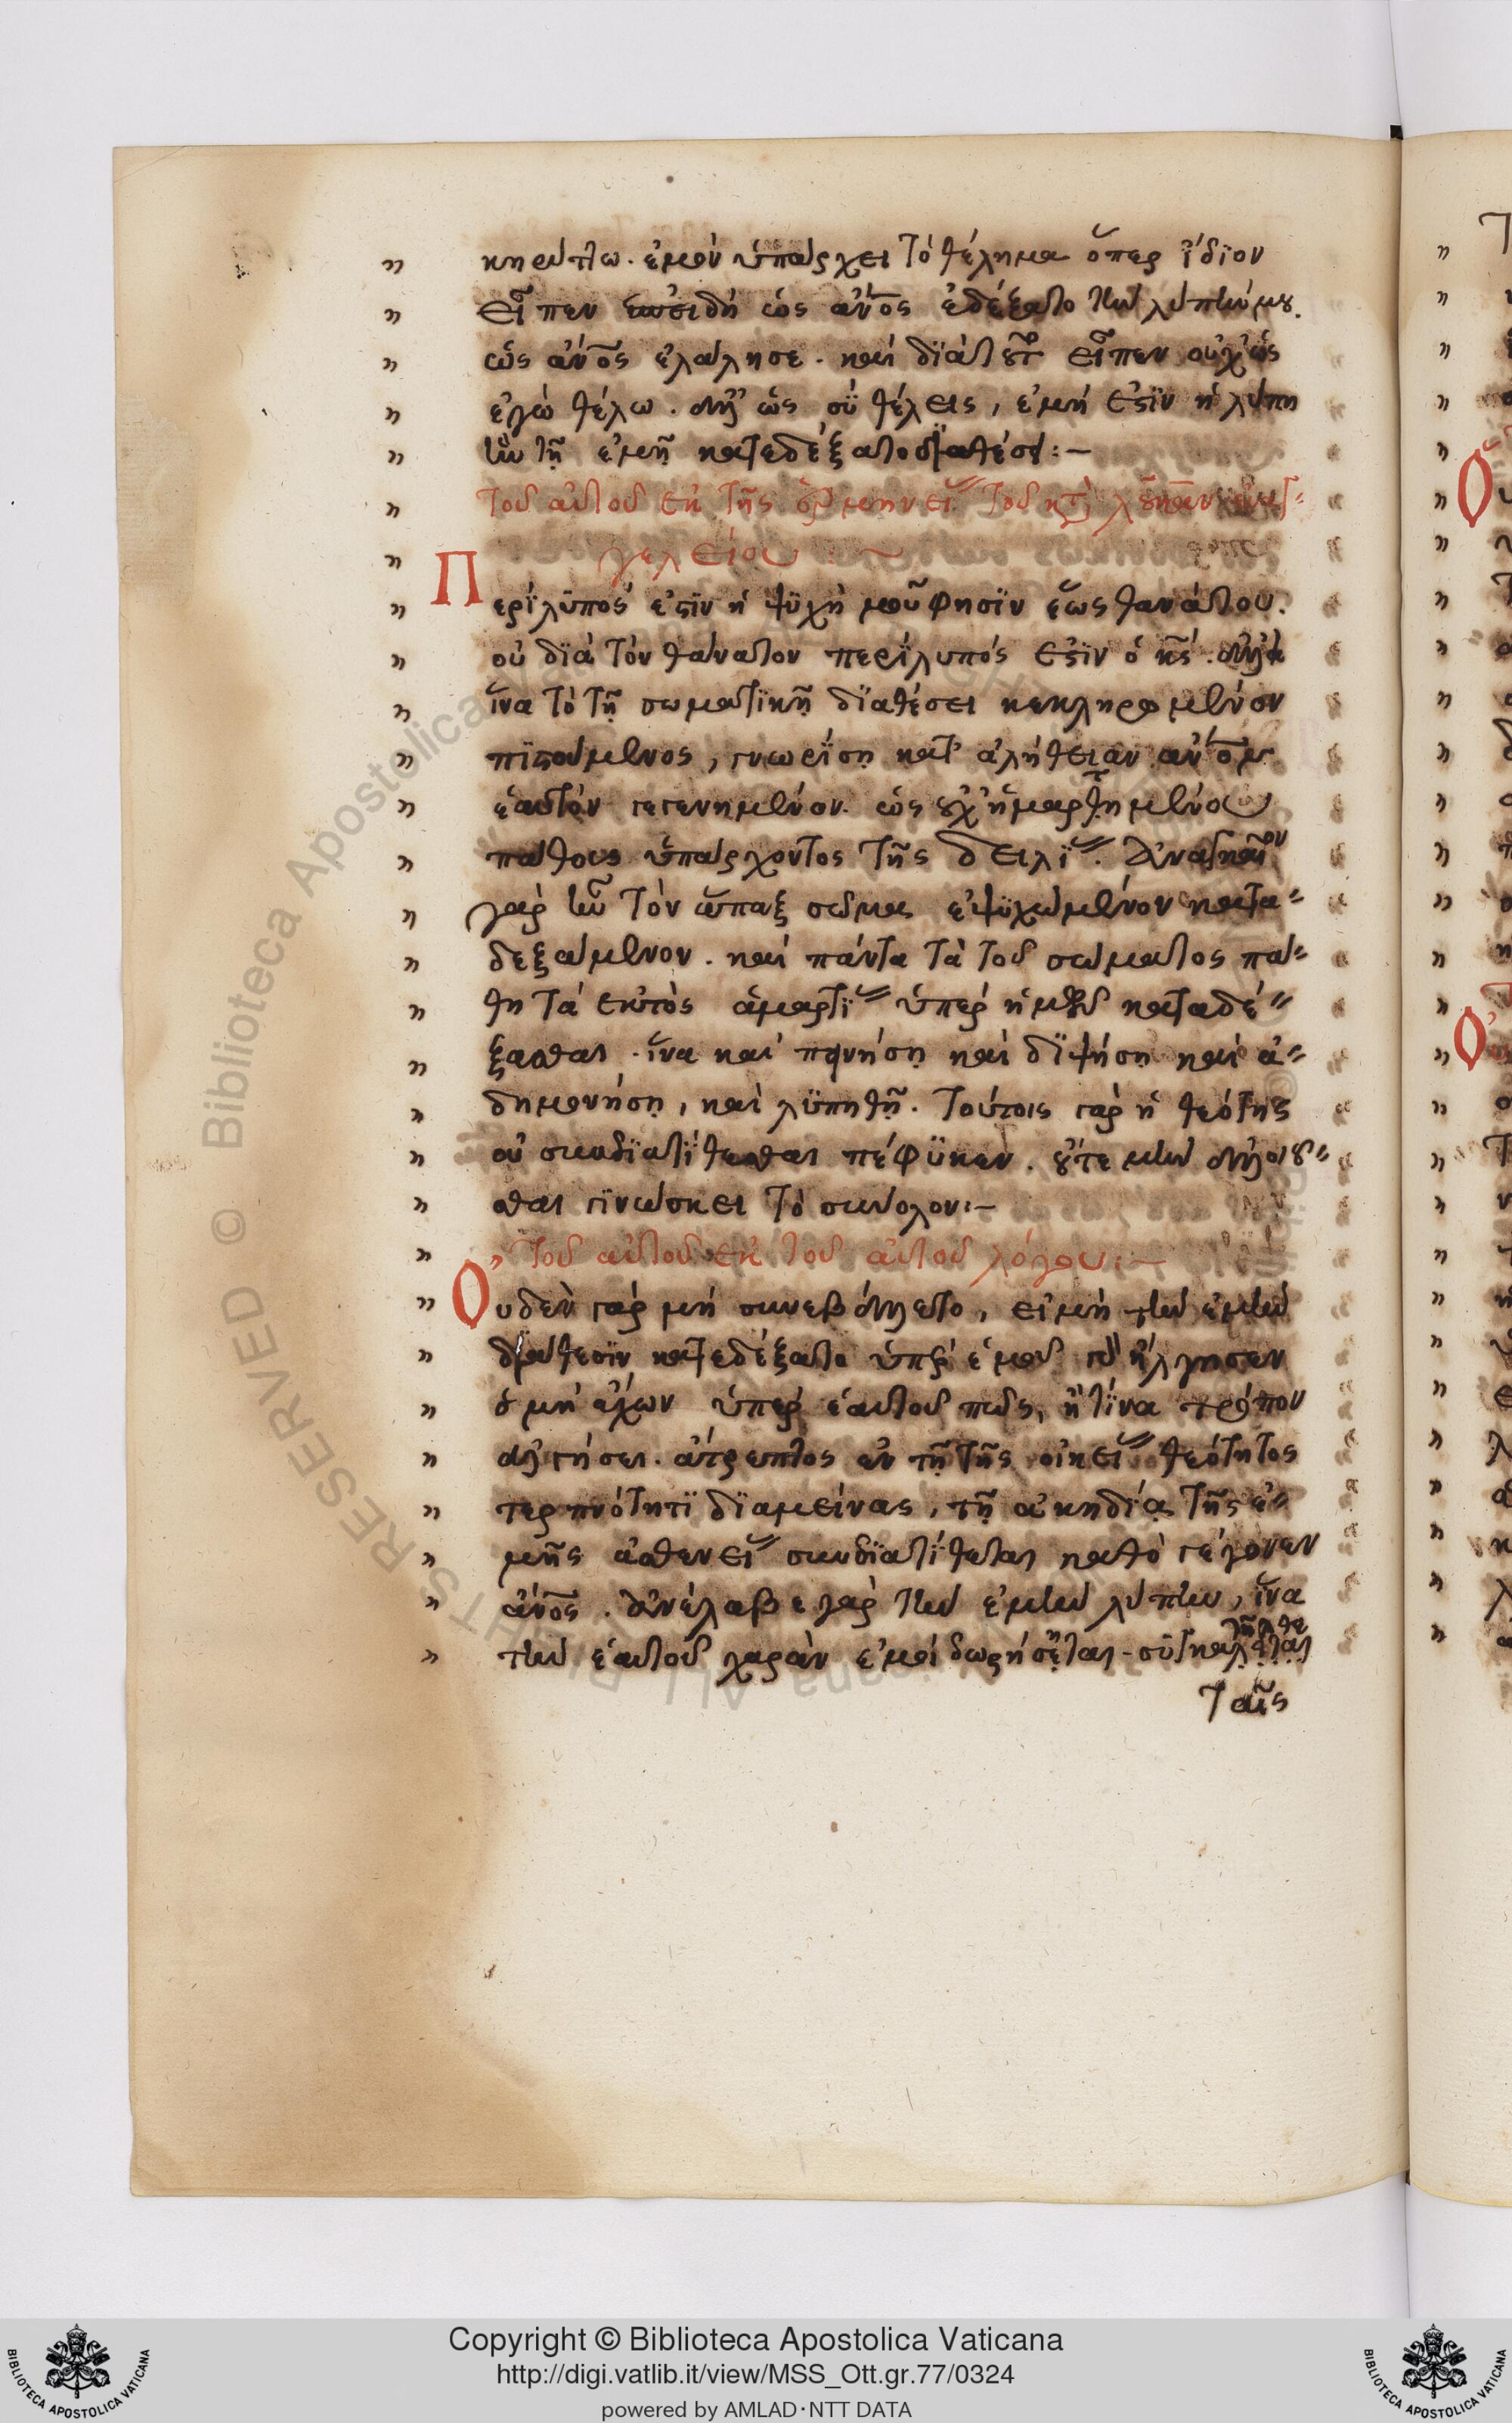 κηρύττω. ἐμὸν ὑπάρχει τὸ θέλημα ὅπερ ἴδϊον
εἶπεν ἐπειδὴ ὡς ἄν̅ο̅ς ἐδέξατο τὴν λύπην μου.
ὡς ἄν̅ο̅ς ἐλάλησε. καὶ δϊὰ τοῦτο εἶπεν οὐχ' ὡς
ἐγὼ θέλω. ἀλλ' ὡς σὺ θέλεις, ἐμὴ ἐστὶν ἡ λύπη
ἣν τῆ ἐμῆ κατεδέξατο διαθέσει:—
Τοῦ αὐτοῦ ἐκ τῆς ἑρμηνείας τοῦ κατὰ λουκᾶν εὐαγ-
γελείου
Περίλϋπός ἐστϊν ἡ ψϋχή μου φησϊν ἕως θανάτου.
οὐ δϊὰ τὸν θάνατον περίλυπός ἐστϊν ὁ κ̅ς̅. ἀλλ'
ἵνα τὸ τῆ σωματϊκῆ δϊαθέσει
πϊστούμενος, γνωρίση κατ' ἀλήθειαν ἄν̅ο̅ν
ἑαυτὸν γεγενημένον. ὡς οὐχ' ἡμαρτημένου
πάθους ὑπάρχοντος τῆς δειλίας. ἀναγκαῖον
γὰρ ἦν τὸν ἅπαξ σῶμα ἐψϋχωμένον κατα-
δεξάμενον. καὶ πάντα τὰ τοῦ σώματος πά-
θη τὰ ἐκτὸς ἁμαρτίας ὑπὲρ ἡμῶν καταδέ-
ξασθαι. ἵνα καὶ πεινήση καὶ δϊψήση καὶ ἀ-
δημονήση, καὶ λϋπηθῆ. τούτοις γὰρ ἡ θεότης
οὐ συνδϊατίθεσθαι πέφϋκεν. οὔτε μὴν ἀλλοιοῦ-
σθαι γϊνώσκει τὸ σύνολον:—
Τοῦ αὐτοῦ ἐκ τοῦ αὐτοῦ λόγου:—
Οὐδὲν γὰρ μὴ συνεβάλλετο, εἰ μὴ τὴν ἐμὴν
διάθεσϊν κατεδέξατο ὑπὲρ ἐμοῦ ἤλγησεν
ὁ μὴ ἔχων ὑπὲρ ἑαυτοῦ πῶς, ἢ τίνα τρόπον
ἀλγήσει. ἄτρεπτος ἐν τῆ τῆς οἰκείας θεότητος
τερπνότητϊ δϊαμείνας, τῆ ἀκηδία τῆς ἐ-
μῆς ἀσθενείας συνδϊατίθεται καθὸ γέγονεν
ἄν̅ο̅ς. ἀνέλαβε γὰρ τὴν ἐμὴν λύπην, ἵνα
τὴν ἑαυτοῦ χαρὰν ἐμοὶ δωρήσηται.
ταῖς
Copyright © Biblioteca Apostolica Vaticana
http://digi.vatlib.it/view/MSS_Ott.gr.77/0324
powered by AMLAD·NTT DATA